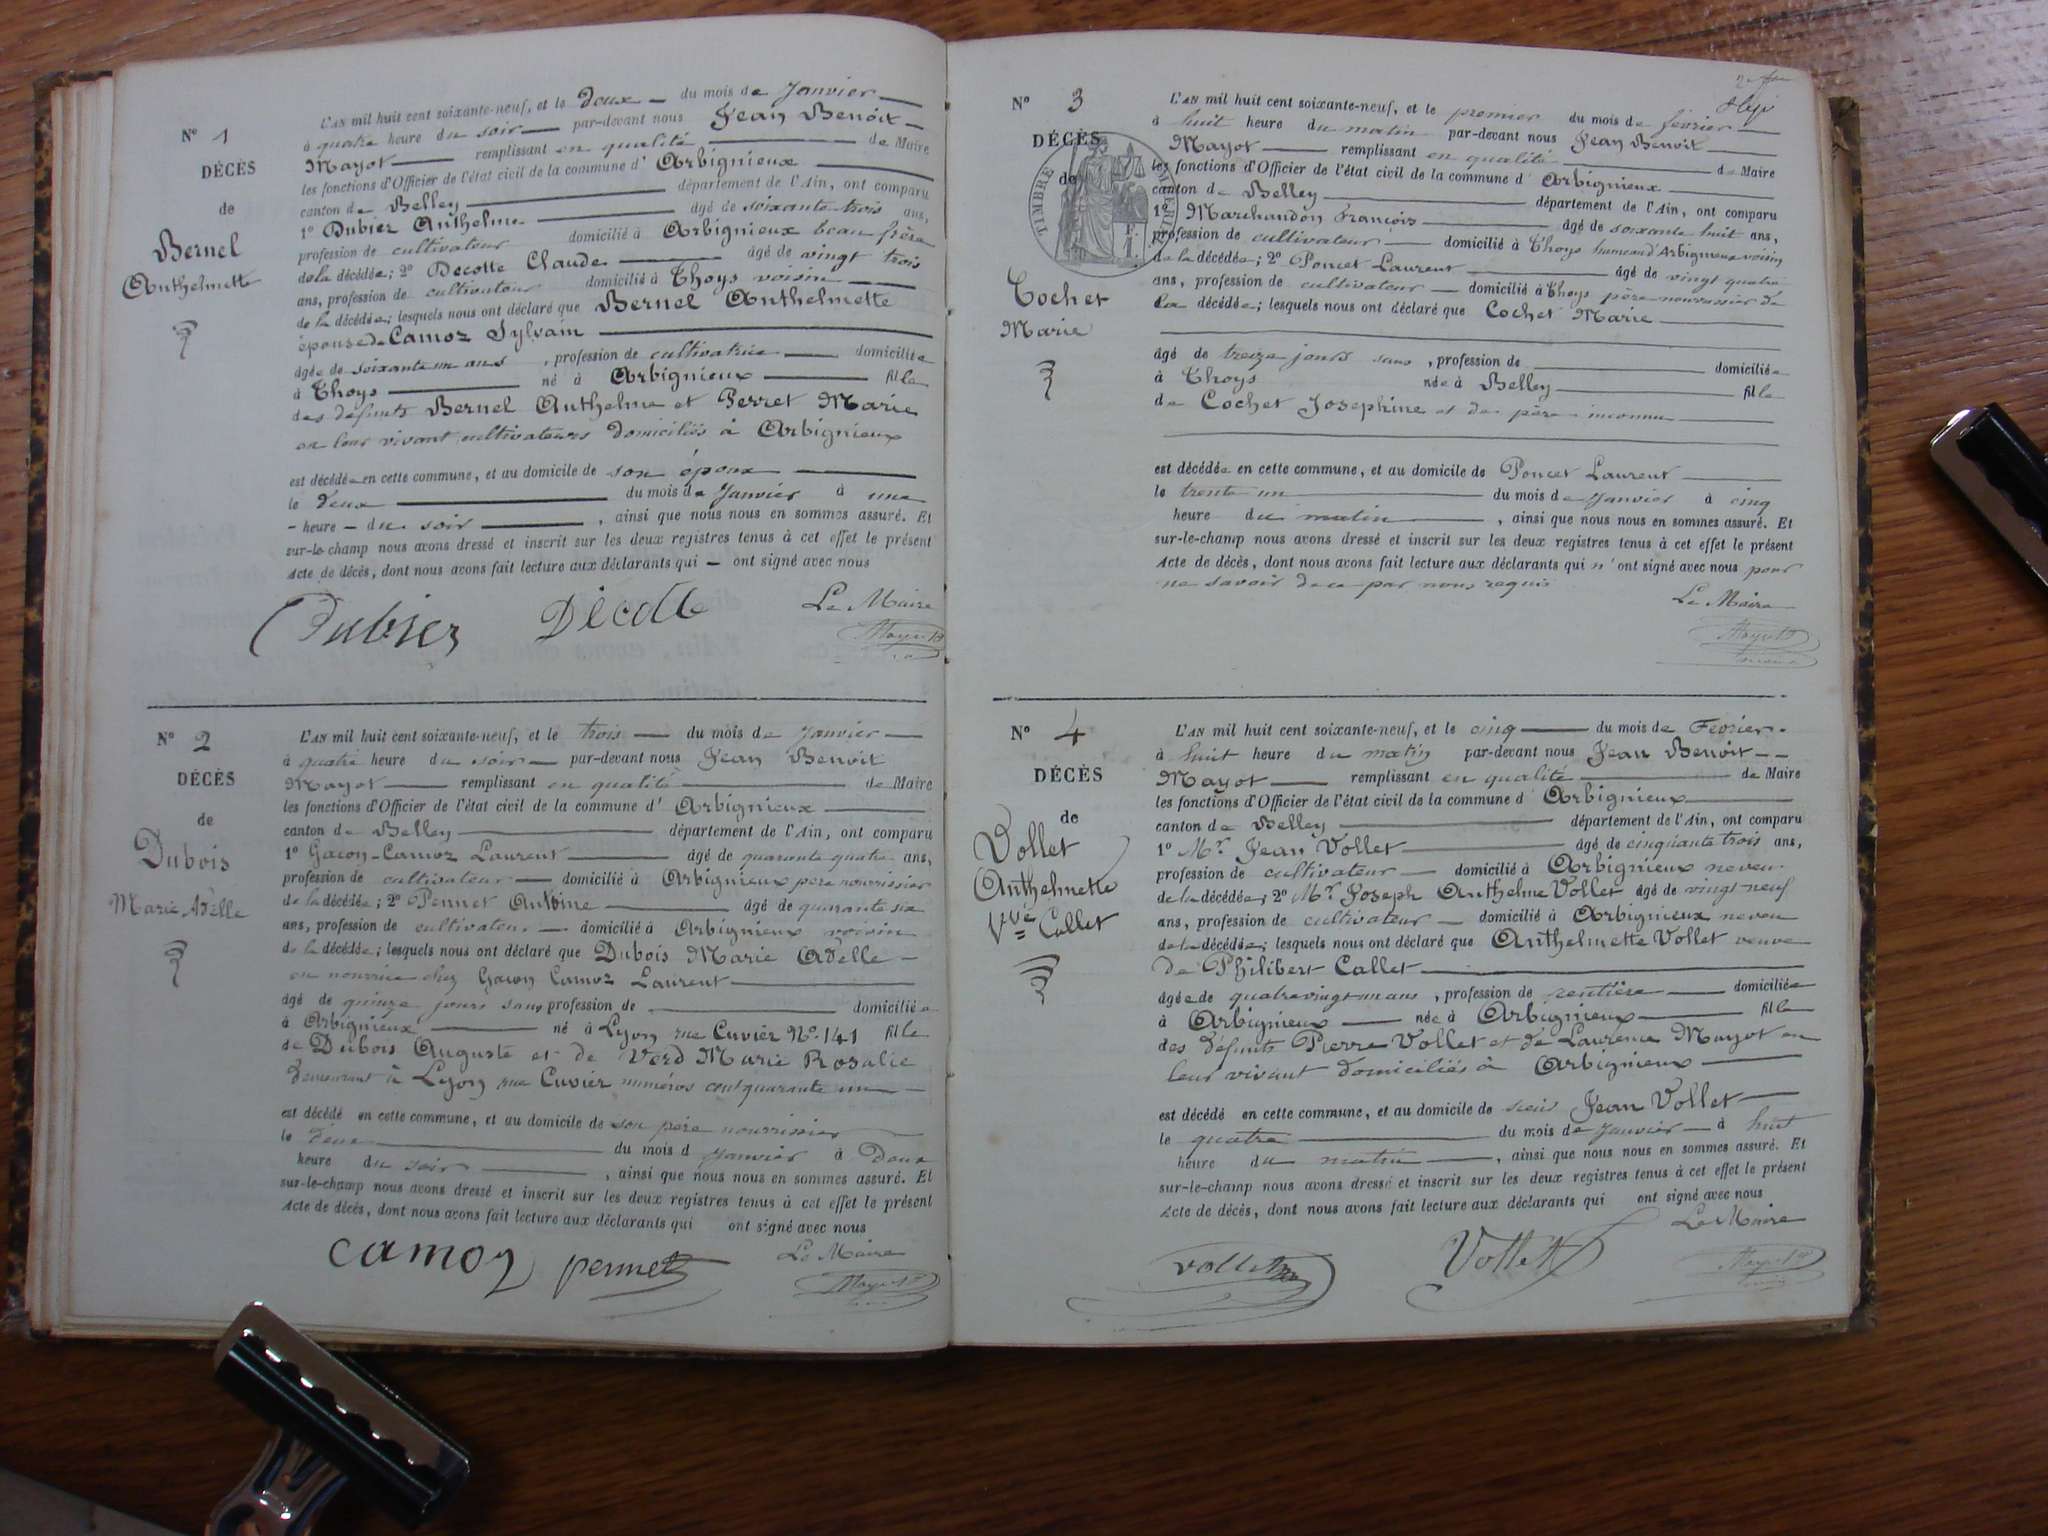 N° 1
DÉCÈS
de
Bernel
Anthelmette
L'AN mil huit cent soixante-neuf, et le deux du mois de Janvier
à quatre heure du soir par-devant nous Jean Benoit
Mayot remplissant en qualité de Maire
les fonctions d'Officier de l'état civil de la commune d' Arbignieux
canton de Belley département de l'Ain, ont comparu
1° Dubier Anthelme âgé de soixante trois ans,
profession de cultivateur domicilié à Arbignieux beau frère
de la décédée; 2° Decotte Claude âgé de vingt trois
ans, profession de cultivateur domicilié à Thoys voisin
de la décédée; lesquels nous ont déclaré que Bernel Anthelmette
épouse de Camoz Sylvain
âgée de soixante un ans , profession de cultivatrice domiciliée
à Thoys né à Arbignieux fille
des défunts Bernel Anthelme et Perret Marie
en leur vivant cultivateurs domiciliés à Arbignieux
est décédée en cette commune, et au domicile de son époux
le deux du mois de Janvier à une
heure du soir , ainsi que nous nous en sommes assuré. Et
sur-le-champ nous avons dressé et inscrit sur les deux registres tenus à cet effet le présent
Acte de décès, dont nous avons fait lecture aux déclarants qui ont signé avec nous
Dubier Décotte Le Maire
Mayot
N° 2
DÉCÈS
de
Dubois
Marie Adelle
L'AN mil huit cent soixante-neuf, et le trois du mois de Janvier
à quatre heure du soir par-devant nous Jean Benoit
Mayot remplissant en qualité de Maire
les fonctions d'Officier de l'état civil de la commune d' Arbignieux
canton de Belley département de l'Ain, ont comparu
1° Gacon-Camoz Laurent âgé de quarante quatre ans,
profession de cultivateur domicilié à Arbignieux père nourrissier
de la décédée; 2° Pennet Antoine âgé de quarante six
ans, profession de cultivateur domicilié à Arbignieux voisin
de la décédée; lesquels nous ont déclaré que Dubois Marie Adelle
en nourrice chez Gacon Camoz Laurent
âgé de quinze jours sans profession de domiciliée
à Arbignieux né à Lyon rue Cuvier N° 141 fille
de Dubois Auguste et de Verd Marie Rosalie
demeurant à Lyon rue Cuvier numéros cent quarante un
est décédé en cette commune, et au domicile de son père nourrissier
le deux du mois d Janvier à Deux
heure du soir , ainsi que nous nous en sommes assuré. Et
sur-le-champ nous avons dressé et inscrit sur les deux registres tenus à cet effet le présent
Acte de décès, dont nous avons fait lecture aux déclarants qui ont signé avec nous
camoz pennet Le Maire
Mayot
N° 3
DÉCÈS
de
TIMBRE IMPERIAL
Cochet
Marie
L'AN mil huit cent soixante-neuf, et le premier du mois de février
à huit heure du matin par-devant nous Jean Benoit
Mayot remplissant en qualité de Maire
les fonctions d'Officier de l'état civil de la commune d' Arbignieux
canton de Belley département de l'Ain, ont comparu
1° Marchandon François âgé de soixante huit ans,
profession de cultivateur domicilié à Thoys hameau d'Arbignieux voisin
de la décédée; 2° Poncet Laurent âgé de vingt quatre
ans, profession de cultivateur domicilié à Thoys père nourrissier de
la décédée; lesquels nous ont déclaré que Cochet Marie
âgé de treize jours sans , profession de domiciliée
à Thoys née à Belley fille
de Cochet Josephine et de père inconnu
est décédée en cette commune, et au domicile de Poncet Laurent
le trente un du mois de Janvier à cinq
heure du matin , ainsi que nous nous en sommes assuré. Et
sur-le-champ nous avons dressé et inscrit sur les deux registres tenus à cet effet le présent
Acte de décès, dont nous avons fait lecture aux déclarants qui n'ont signé avec nous pour
ne savoir de ce par nous requis
Le Maire
Mayot
N° 4
DÉCÈS
de
Vollet
Anthelmette
Vve Callet
L'AN mil huit cent soixante-neuf, et le cinq du mois de Fevrier
à huit heure du matin par-devant nous Jean Benoit
Mayot remplissant en qualité de Maire
les fonctions d'Officier de l'état civil de la commune d' Arbignieux
canton de Belley département de l'Ain, ont comparu
1° Mr Jean Vollet âgé de cinquante trois ans,
profession de cultivateur domicilié à Arbignieux neveu
de la décédée; 2° Mr Joseph Anthelme Vollet âgé de vingt neuf
ans, profession de cultivateur domicilié à Arbignieux neveu
de la décédée; lesquels nous ont déclaré que Anthelmette Vollet veuve
de Philibert Callet
âgée de quatre vingt un ans , profession de rentière domiciliée
à Arbignieux née à Arbignieux fille
des défunts Pierre Vollet et de Laurence Mayot en
leur vivant domiciliés à Arbignieux
est décédé en cette commune, et au domicile de sieur Jean Vollet
le quatre du mois de Janvier à huit
heure du matin , ainsi que nous nous en sommes assuré. Et
sur-le-champ nous avons dressé et inscrit sur les deux registres tenus à cet effet le présent
Acte de décès, dont nous avons fait lecture aux déclarants qui ont signé avec nous
Le Maire
vollet Vollet Mayot